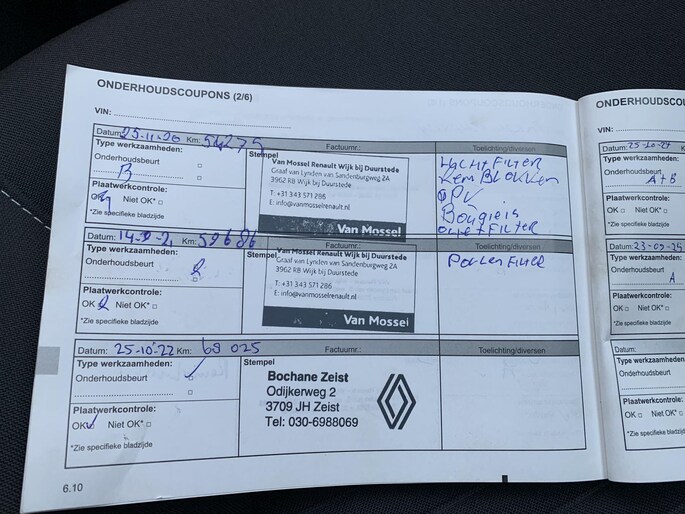 ONDERHOUDSCOUPONS (2/6)
VIN:
Datum: 25-11-20 Km: 54275 Factuurnr.: Toelichting/diversen
Type werkzaamheden: Stempel
Onderhoudsbeurt
B
Plaatwerkcontrole:
OK Niet OK*
*Zie specifieke bladzijde
Van Mossel Renault Wijk bij Duurstede
Graaf van Lynden van Sandenburgweg 2A
3962 RB Wijk bij Duurstede
T: +31 343 571 286
E: info@vanmosselrenault.nl
Van Mossel
LUCHTFILTER
RemBLOKKEN
PV
Bougieis
FILTER
Datum: Km: 59686 Factuurnr.: Toelichting/diversen
Type werkzaamheden: Stempel
Onderhoudsbeurt
Plaatwerkcontrole:
OK Niet OK*
*Zie specifieke bladzijde
Van Mossel Renault Wijk bij Duurstede
Graaf van Lynden van Sandenburgweg 2A
3962 RB Wijk bij Duurstede
T: +31 343 571 286
E: info@vanmosselrenault.nl
Van Mossel
POLLEN FILTER
Datum: 25-10-22 Km: 69 025 Factuurnr.: Toelichting/diversen
Type werkzaamheden: Stempel
Onderhoudsbeurt
Plaatwerkcontrole:
OK Niet OK*
*Zie specifieke bladzijde
Bochane Zeist
Odijkerweg 2
3709 JH Zeist
Tel: 030-6988069
6.10
ONDERHOUDSCOU
VIN:
Datum:
Type werkzaamheden:
Onderhoudsbeurt
A+B
Plaatwerkcontrole:
OK Niet OK*
*Zie specifieke bladzijde
Datum: 23-09-25
Type werkzaamheden:
Onderhoudsbeurt
A
Plaatwerkcontrole:
OK Niet OK*
*Zie specifieke bladzijde
Datum:
Type werkzaamheden:
Onderhoudsbeurt
Plaatwerkcontrole:
OK Niet OK*
*Zie specifieke bladzijde